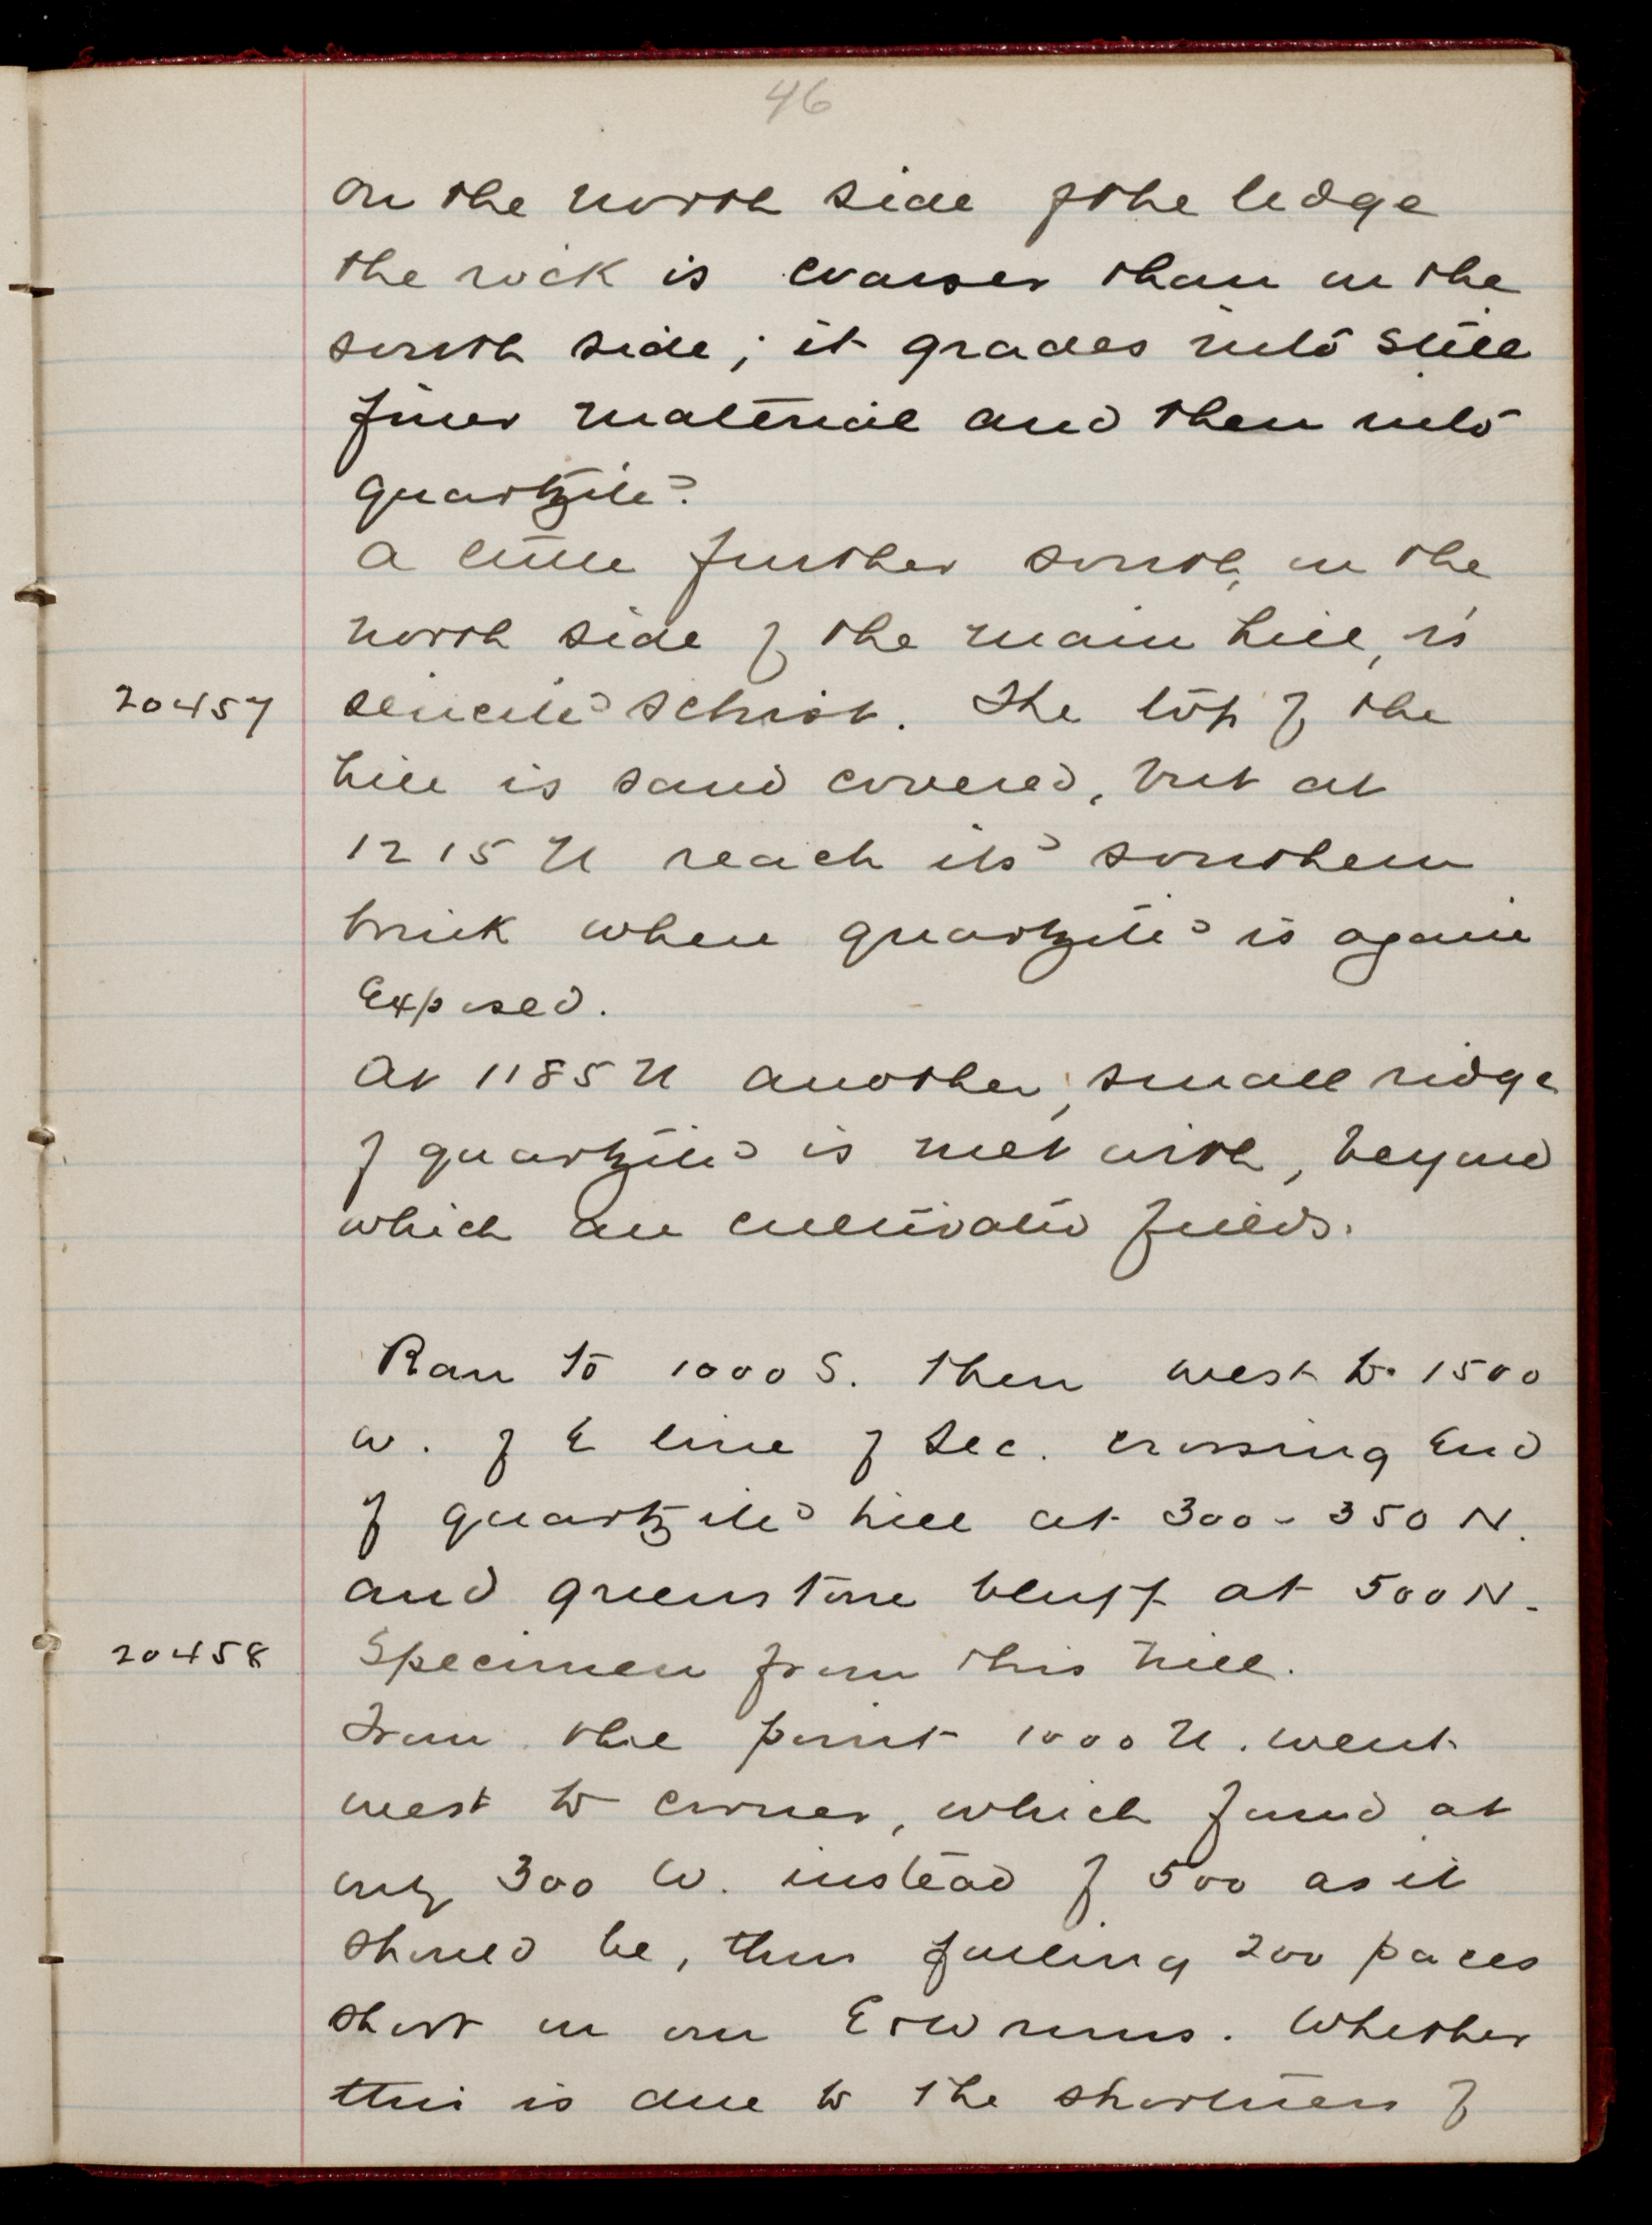 46
On the north side of the ledge
the rock is coarser than on the
south side; it grades into still
finer material and then into
quartzite.
A little further south, on the
north side of the main hill, is
20457 sericite schist. The top of the
hill is sand covered, but at
1215 N reach its southern
brink where quartzite is again
exposed.
At 1185 N another, small ridge
of quartzite is met with, beyond
which are cultivated fields.
Ran to 1000 S. then west to 1500
W. of E line of Sec. crossing end
of quartzite hill at 300-350 N.
and greenstone bluff at 500 N.
20458 Specimen from this hill.
From the point 1000 N. went
west to corner, which found at
only 300 W. instead of 500 as it
should be, thus falling 200 paces
short in our E+W runs. Whether
this is due to the shortness of